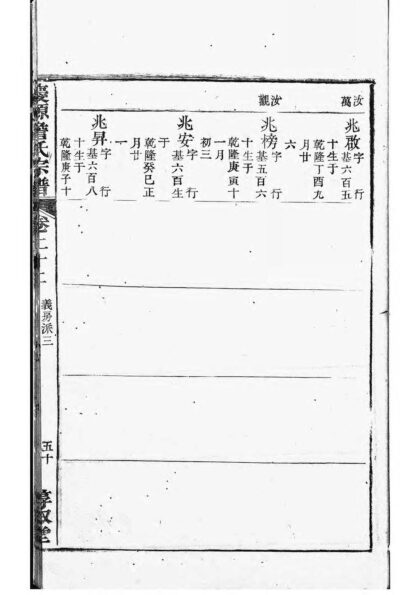 汝萬
兆啟字行
基六百五
十生于
乾隆丁酉九
月廿
六
汝觀
兆榜字行
基五百六
十生于
乾隆庚寅十
一月
初三
兆安字行
基六百生
于
乾隆癸巳正
月廿
一
兆昇字行
基六百八
十生于
乾隆庚子十
源 氏宗譜
卷二十二
義房派三
五十